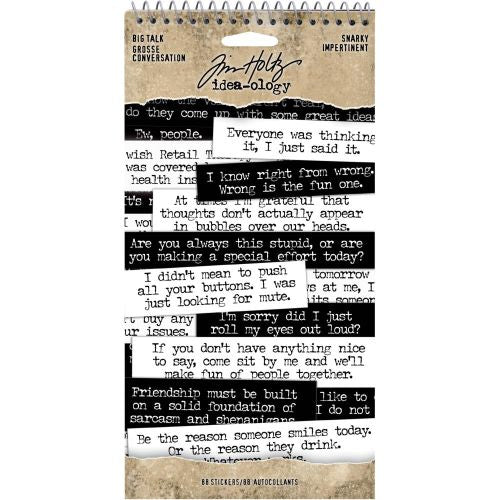 BIG TALK
GROSSE
CONVERSATION
SNARKY
IMPERTINENT
Tim Holtz
idea-ology
know the real
do they come up with some great ideas
Ew, people.
Everyone was thinking
it, I just said it.
wish Retail
was covered
health ins
I know right from wrong.
Wrong is the fun one.
It's
I wou
At times I'm grateful that
thoughts don't actually appear
in bubbles over our heads.
Are you always this stupid, or are
you making a special effort today?
I didn't mean to push
all your buttons. I was
just looking for mute.
tomorrow
ws at me, I
its someon
't buy any
ur issues.
I'm sorry did I just
roll my eyes out loud?
If you don't have anything nice
to say, come sit by me and we'll
make fun of people together.
Friendship must be built
on a solid foundation of
sarcasm and shenanigans
like to
I do not
Be the reason someone smiles today.
Or the reason they drink.
Whatever works.
88 STICKERS/88 AUTOCOLLANTS